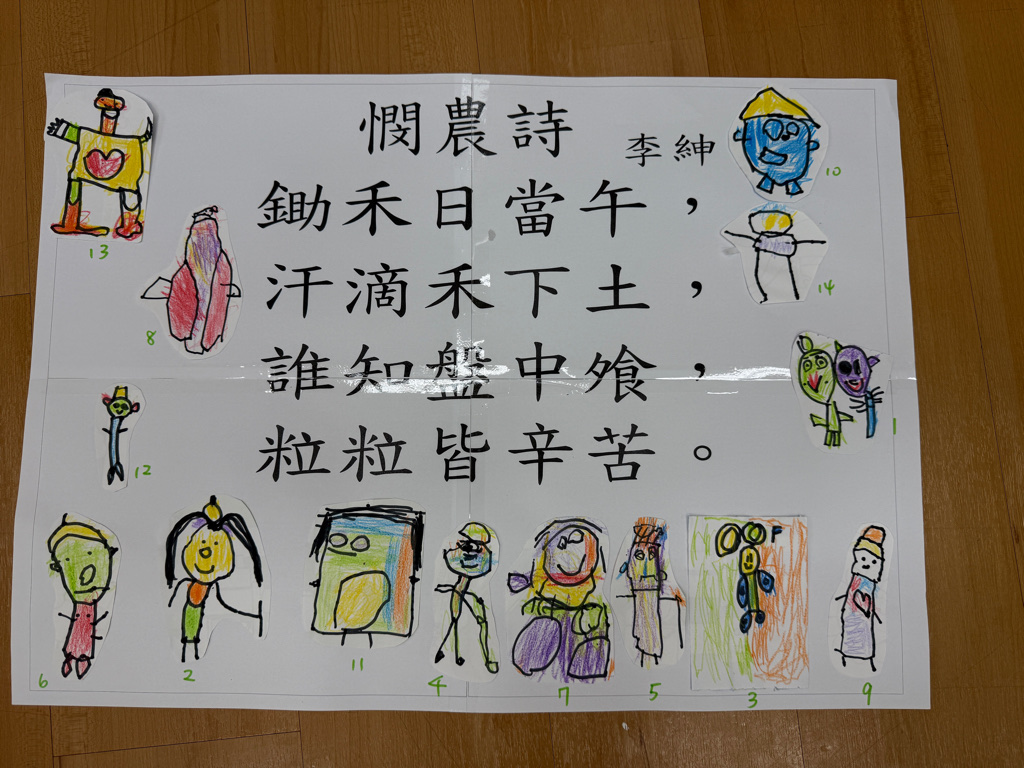 憫農詩
李紳
鋤禾日當午，
汗滴禾下土，
誰知盤中飧，
粒粒皆辛苦。
13
10
8
14
1
12
6
2
11
4
7
5
3
9
F